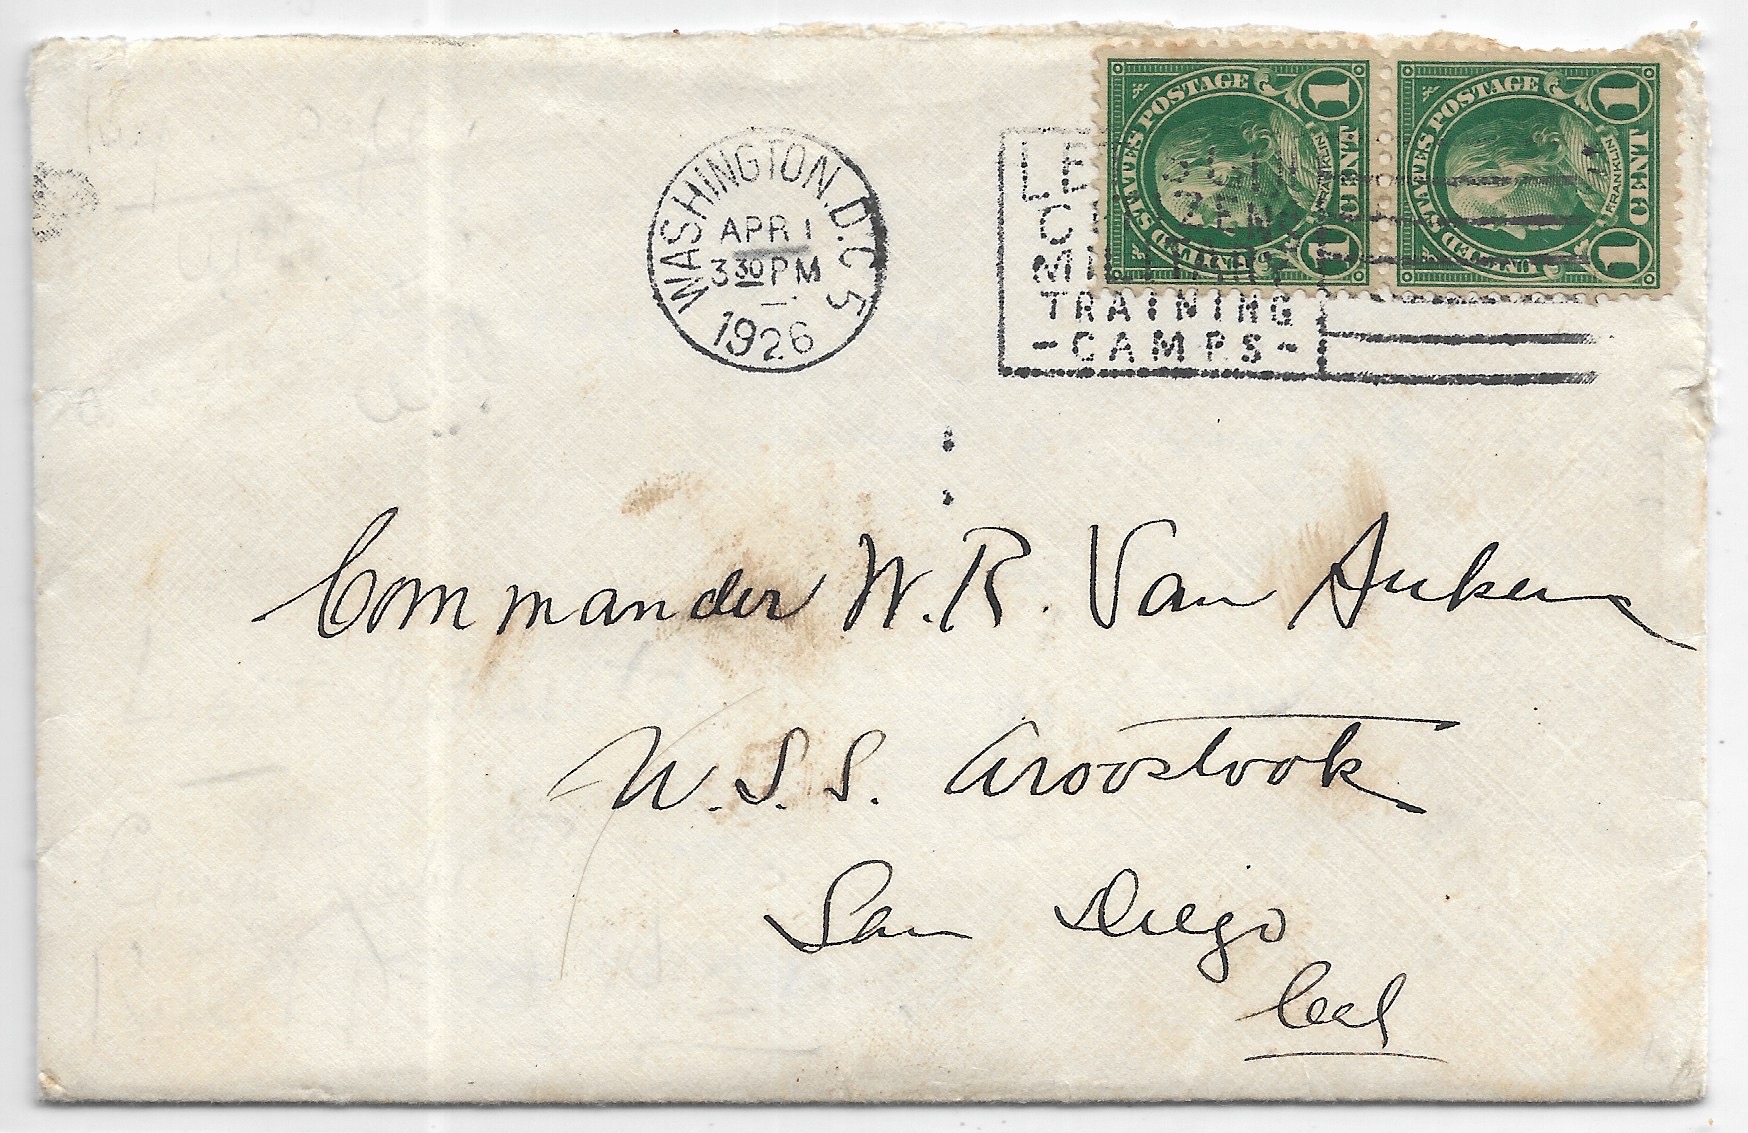 WASHINGTON, D.C. 5
APR 1
3 30 PM
1926
TRAINING
-CAMPS-
UNITED STATES POSTAGE
1 CENT 1
FRANKLIN
UNITED STATES POSTAGE
1 CENT 1
FRANKLIN
Commander W. R. Van Auken
U.S.S. Aroostook
San Diego
Cal